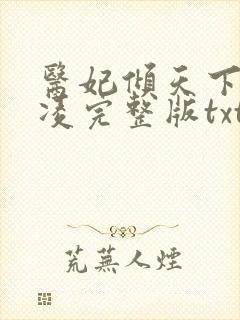 醫妃傾天下
凌完整版txt
荒蕪人煙